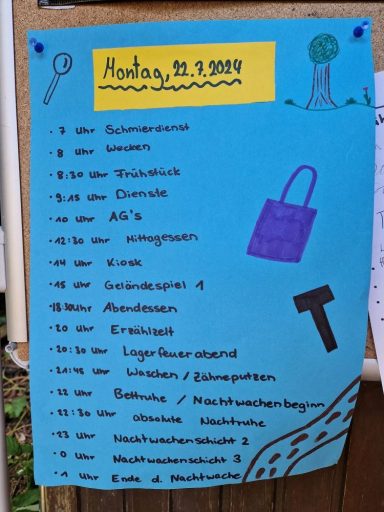 Montag, 22.7.2024
· 7 Uhr Schmierdienst
· 8 Uhr Wecken
· 8:30 Uhr Frühstück
· 9:15 Uhr Dienste
· 10 Uhr AG's
· 12:30 Uhr Mittagessen
· 14 Uhr Kiosk
· 15 Uhr Geländespiel 1
· 18:30 Uhr Abendessen
· 20 Uhr Erzählzelt
· 20:30 Uhr Lagerfeuerabend
· 21:45 Uhr Waschen / Zähneputzen
· 22 Uhr Bettruhe / Nachtwachenbeginn
· 22:30 Uhr absolute Nachtruhe
· 23 Uhr Nachtwachenschicht 2
· 0 Uhr Nachtwachenschicht 3
· 1 Uhr Ende d. Nachtwache